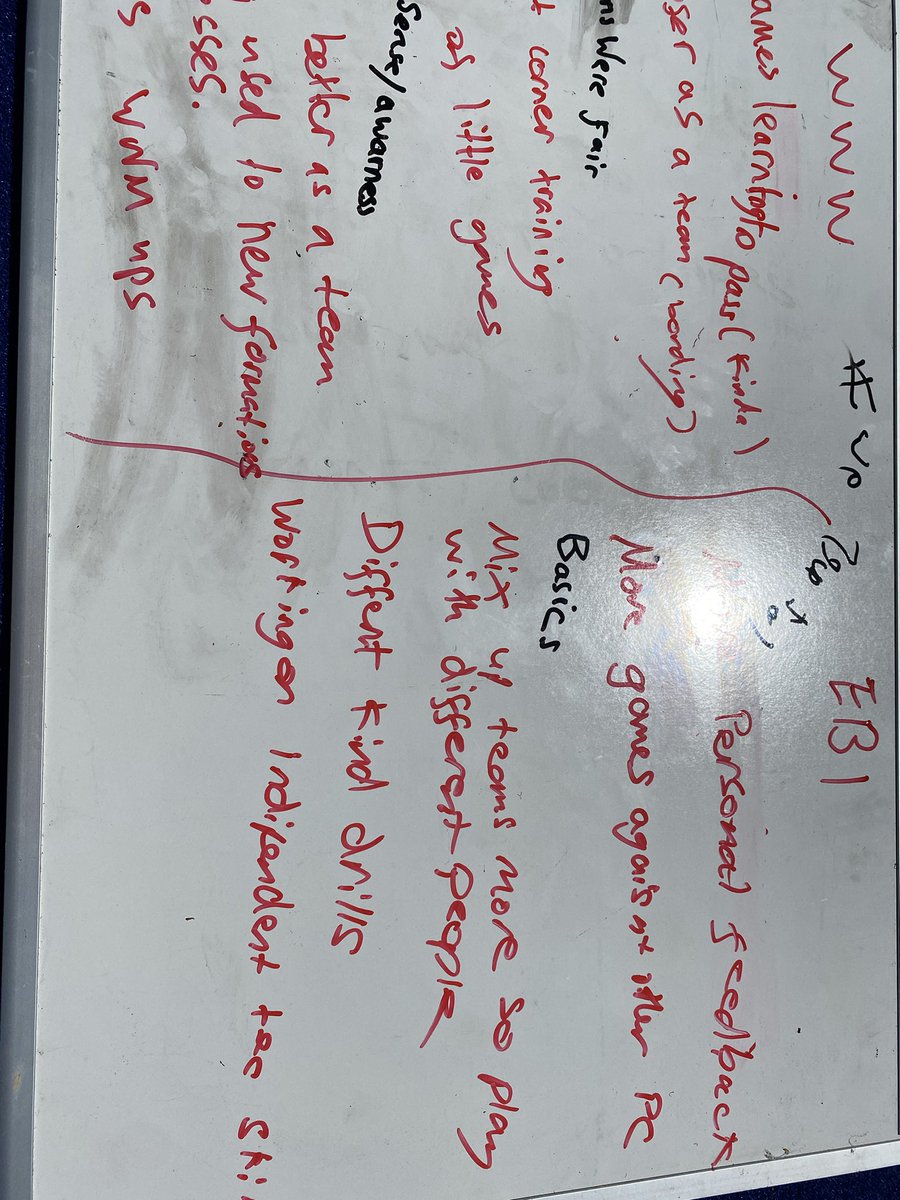 WWW
ames learning to pass (kinda)
ser as a team (bonding)
ns were fair
t corner training
as little games
sense/awarness
better as a team
used to new formations
sses.
s warm ups
EBI
Personal feedback
More games against other PC
Basics
Mix up teams more so play
with different people
Diffent kind drills
Working on Indipendent tec ski